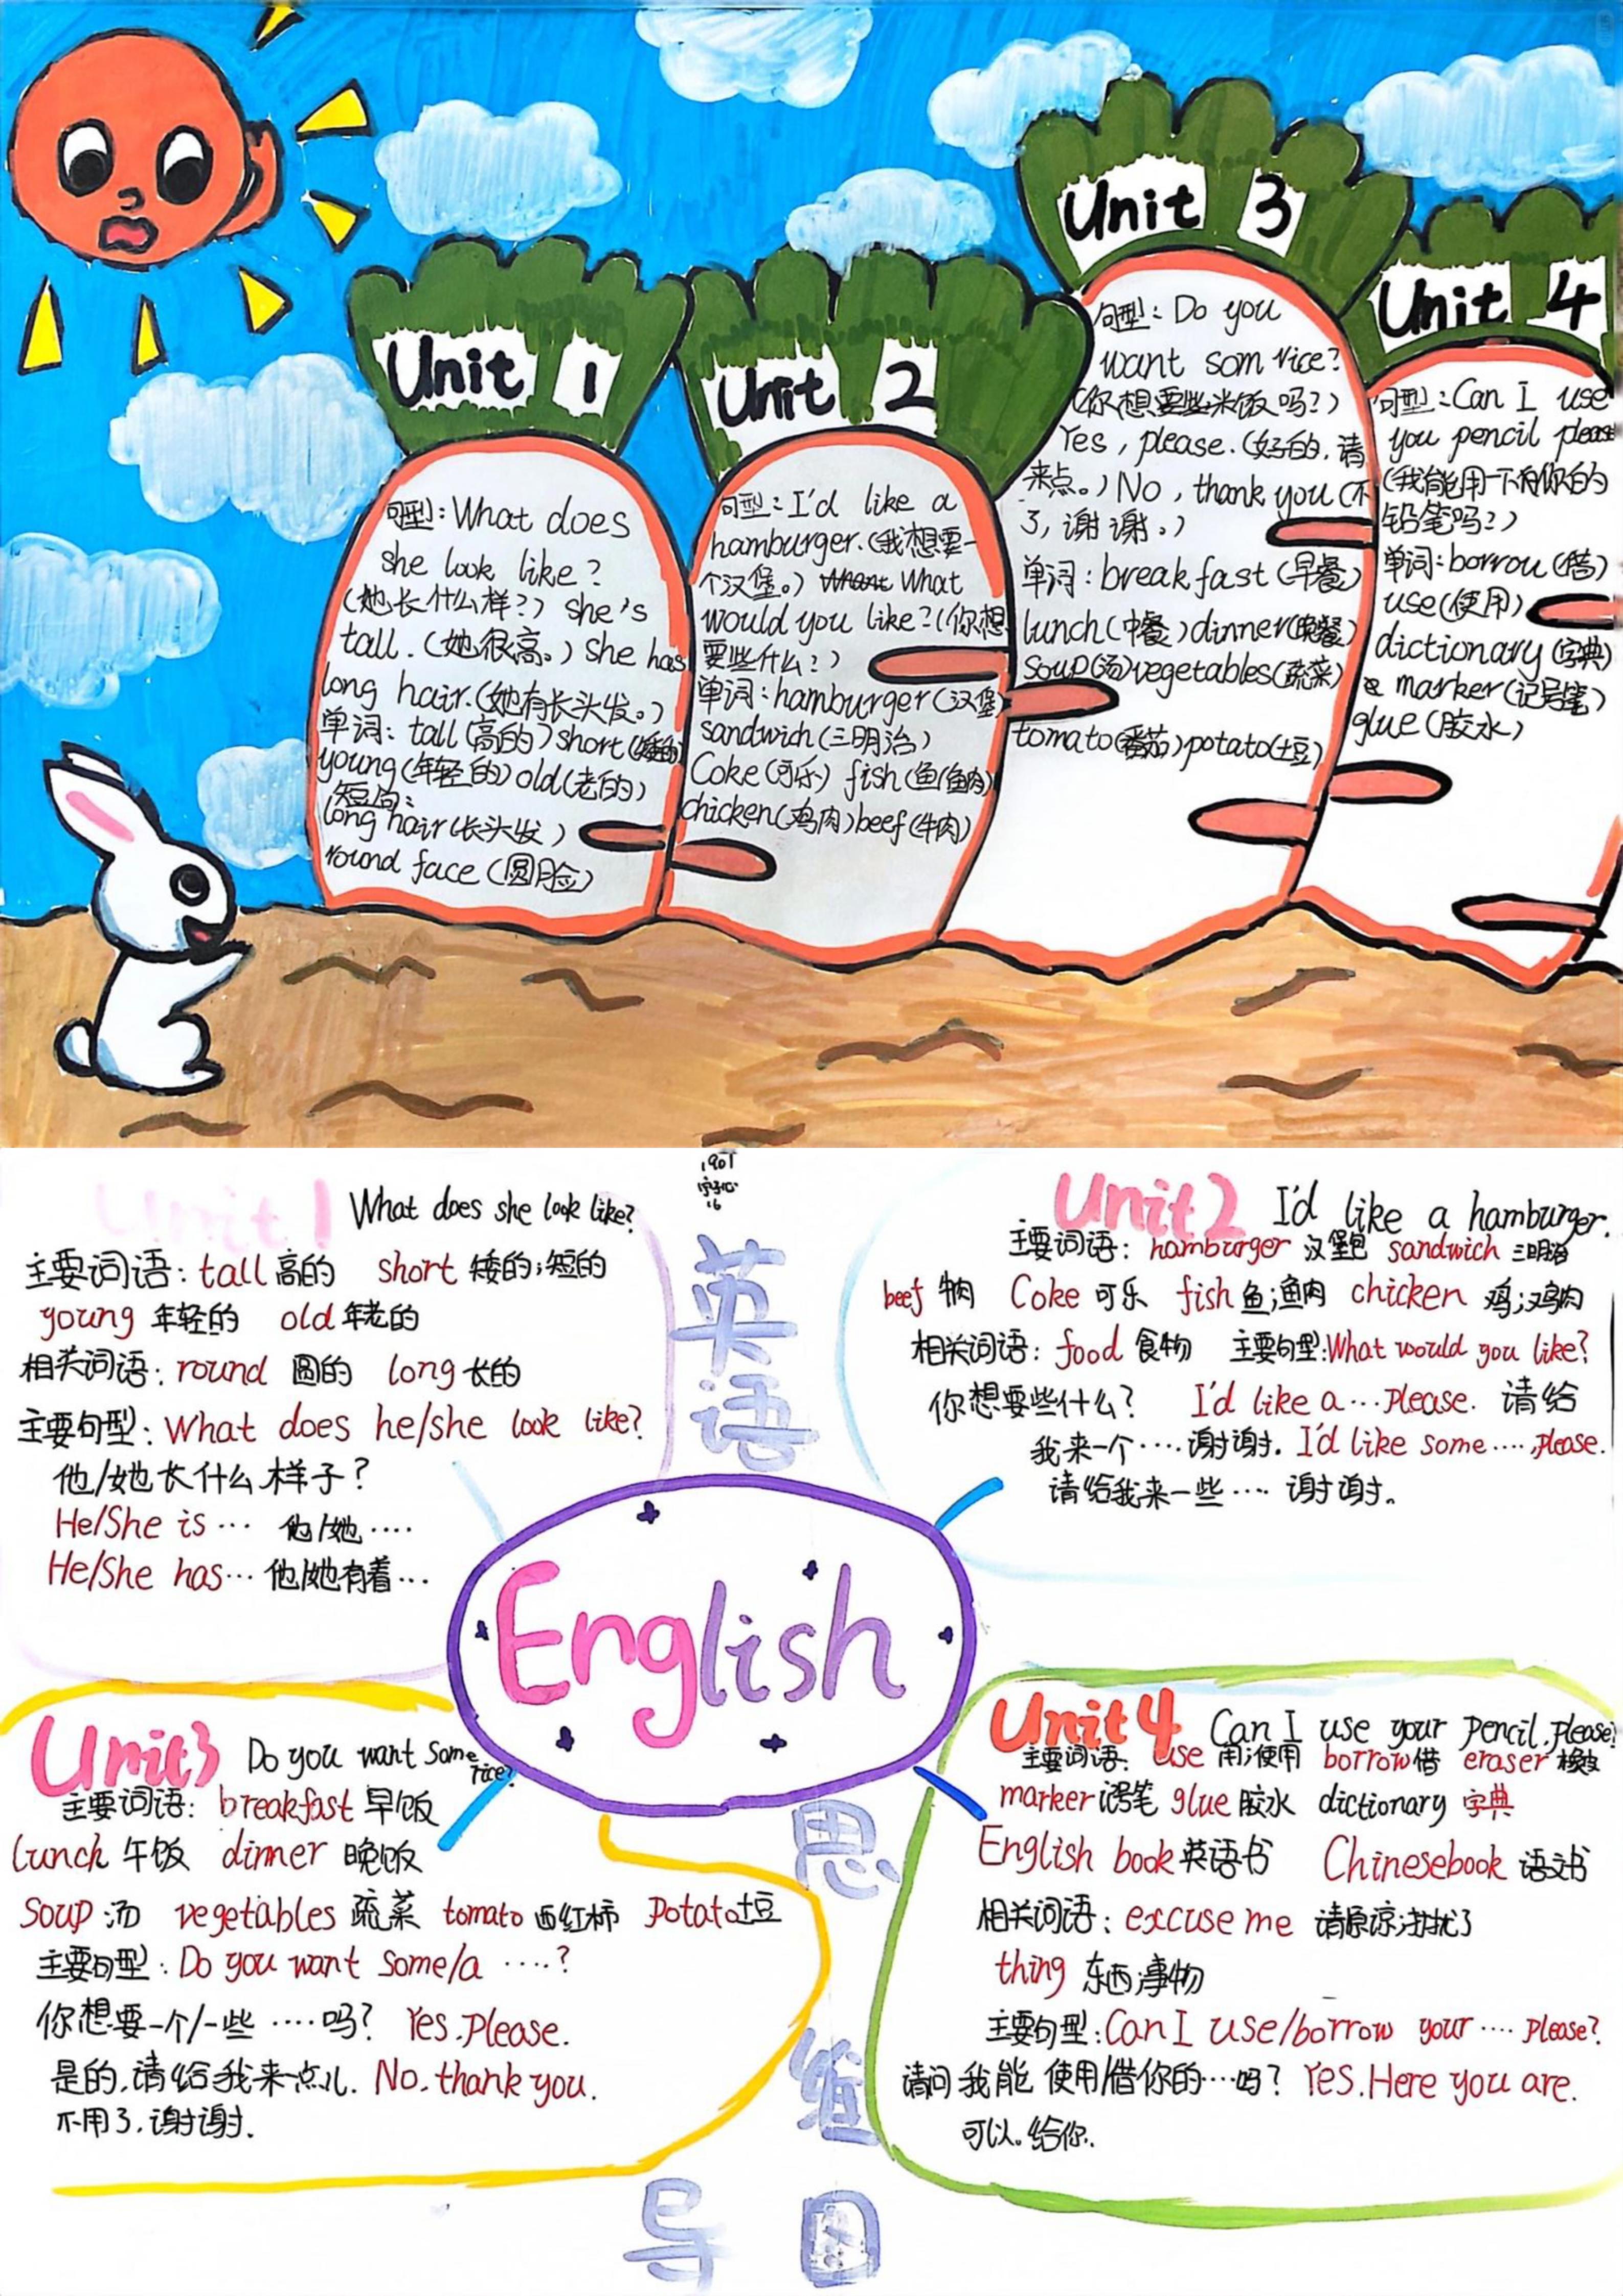 Unit 1
句型：What does
she look like?
(她长什么样?) she's
tall.(她很高。) she has
long hair.(她有长头发。)
单词：tall(高的)short(矮的)
young(年轻的)old(老的)
短句：
long hair(长头发)
round face(圆脸)
Unit 2
句型：I'd like a
hamburger.(我想要一
个汉堡。) What
would you like?(你想
要些什么?)
单词：hamburger(汉堡)
sandwich(三明治)
Coke(可乐) fish(鱼(鱼肉)
chicken(鸡肉)beef(牛肉)
Unit 3
句型：Do you
want som rice?
(你想要些米饭吗?)
Yes, please.(好的,请
来点。) No, thank you(不
了,谢谢。)
单词：breakfast(早餐)
lunch(中餐)dinner(晚餐)
soup(汤)vegetables(蔬菜)
tomato(番茄)potato(土豆)
Unit 4
句型：Can I use
you pencil please
(我能用一下你的
铅笔吗?)
单词：borrou(借)
use(使用)
dictionary(字典)
marker(记号笔)
glue(胶水)
1901
16
英语
Unit 1 What does she look like?
主要词语：tall 高的 short 矮的;短的
young 年轻的 old 年老的
相关词语：round 圆的 long 长的
主要句型：What does he/she look like?
他/她长什么样子?
He/She is … 他/她 ….
He/She has… 他/她有着…
Unit2 I'd like a hamburger.
主要词语：hamburger 汉堡包 sandwich 三明治
beef 牛肉 Coke 可乐 fish 鱼;鱼肉 chicken 鸡;鸡肉
相关词语：food 食物 主要句型:What would you like?
你想要些什么? I'd like a … Please. 请给
我来一个 …. 谢谢. I'd like some …. ,please.
请给我来一些 …. 谢谢。
English
Unit3 Do you want some
rice?
主要词语：breakfast 早饭
lunch 午饭 dinner 晚饭
Soup 汤 vegetables 蔬菜 tomato 西红柿 Potato 土豆
主要句型：Do you want some/a ….?
你想要一个/一些 ….吗? Yes.Please.
是的,请给我来一点儿. No.thank you.
不用了.谢谢.
Unit 4 Can I use your pencil.please?
主要词语：use 用;使用 borrow 借 eraser 橡皮
marker 记号笔 glue 胶水 dictionary 字典
English book 英语书 Chinesebook 语文书
相关词语：excuse me 请原谅;打扰了
thing 东西;事物
主要句型:Can I use/borrow your …. please?
请问我能 使用/借你的….吗? Yes.Here you are.
可以。给你.
思
维
导 图